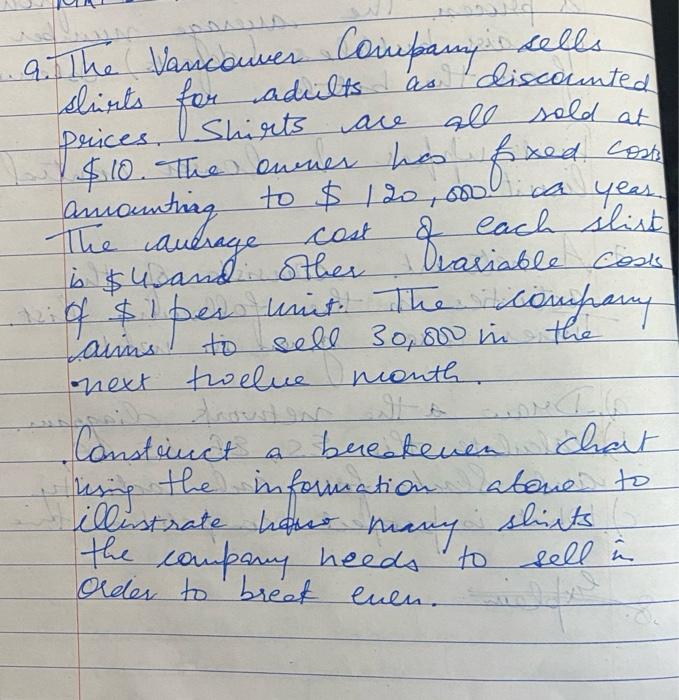 9. The Vancouver Company sells
shirts for adults as discounted
prices. Shirts are all sold at
$10. The owner has fixed costs
amounting to $ 120,000 a year.
The average cost of each shirt
is $4 and other variable costs
of $1 per unit. The company
aims to sell 30,000 in the
next twelve month.
Construct a breakeven chart
using the information above to
illustrate how many shirts
the company needs to sell in
order to break even.